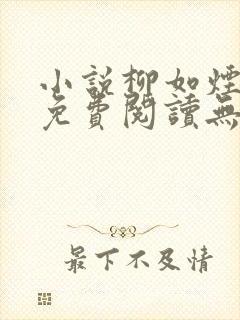 小說柳如煙
免費閱讀無
最下不及情